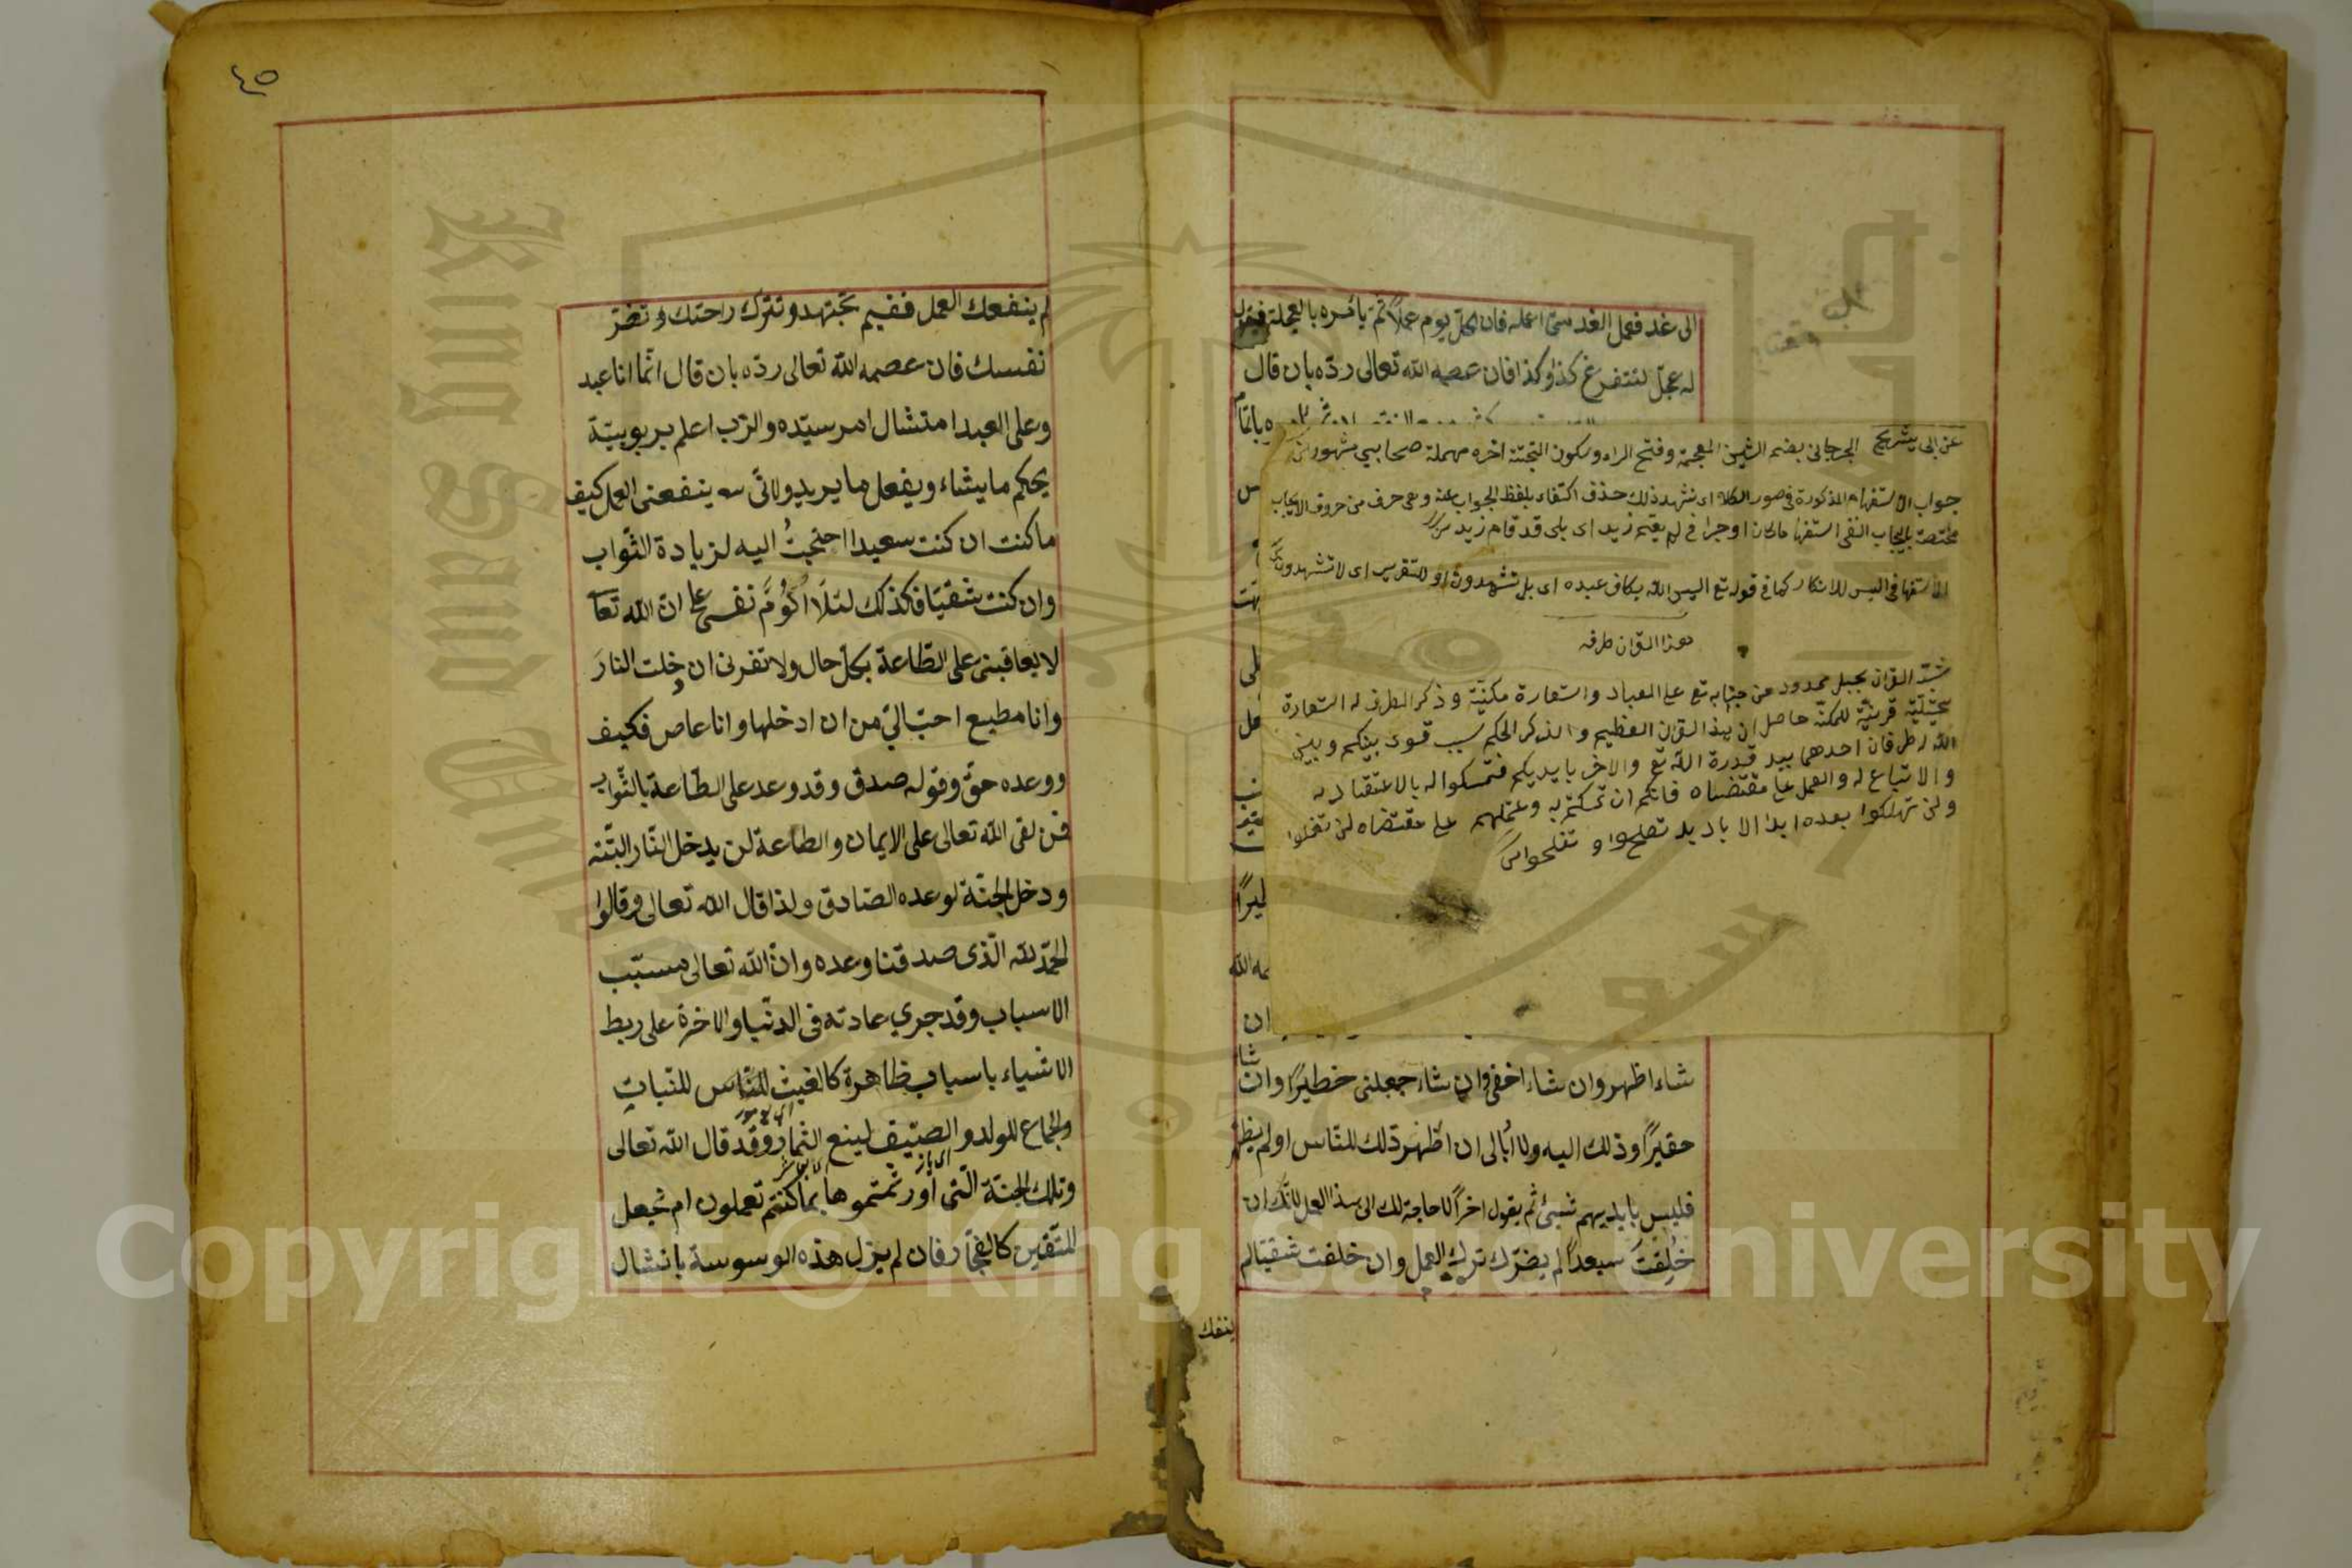 الى غد فعمل الغد متى اعمله فان لكل يوم عملا ثم يأمره بالعجلة فيقول
له عجل لتتفرغ كذا وكذا فان عصمه الله تعالى ردّه بان قال
عن ابى شريح الجرجانى بضم الشين المعجمة وفتح الراء وسكون التحتية اخره مهملة صحابي مشهور
جواب الاستفهام المذكورة فى صور الكلام اى نشهد ذلك حذف اكتفاء بلفظ الجواب عنه وهى حرف من حروف الايجاب
مختصة بايجاب النفى استفهاما كان او خبرا فى لم يقم زيد اى بلى قد قام زيد
الاستفهام فى اليس للانكار كما فى قوله تع اليس الله بكاف عبده اى بل تشهدون او للتقرير اى لا تشهدون
هذا القران طرفه
شبّه القران بحبل ممدود من جنابه تع على العباد واستعارة مكنيّة وذكر الطرف له استعارة
تخييليّة قرينة للمكنيّة حاصل ان هذا القران العظيم والذكر الحكيم سبب قوى بينكم وبين
الله له طرفان احدهما بيد قدرة الله تع والاخر بايديكم فتمسكوا له بالاعتقاد به
والاتباع له والعمل على مقتضاه فانكم ان تمسكتم به وعملتم على مقتضاه لن تضلوا
ولن تهلكوا بعده ابدا الاباد بل تصلحوا و تفلحوا
شاء اظهر وان شاء اخفى وان شاء جعلنى خطيرًا وان شاء
حقيرًا وذلك اليه ولا أبالى ان اظهر ذلك للنّاس او لم يظهر
فليس بايديهم شيئ ثم يقول اخرًا لا حاجة لك الى هذا العمل لانّك ان
خُلِقتَ سعيدًا لم يضرّك ترك العمل وان خلقت شقيّا لم
ينفعك
٤٥
لم ينفعك العمل ففيم تجتهد وتترك راحتك وتضرّ
نفسك فان عصمه الله تعالى ردّه بان قال انّما انا عبد
وعلى العبد امتثال امر سيّده والرّب اعلم بربوبيّة
يحكم ما يشاء ويفعل ما يريد ولانّى ينفعنى العمل كيف
ما كنت ان كنت سعيدا احتجتُ اليه لزيادة الثّواب
وان كنت شقيّا فكذلك لئلا ألُومَ نفسى على ان الله تعا
لا يعاقبنى على الطّاعة بكلّ حال ولا تضرنى ان دخلت النارَ
وانا مطيع احبّ اليّ من ان ادخلها وانا عاص فكيف
ووعده حقّ وقوله صدق وقد وعد على الطّاعة بالثّواب
فمن لقى الله تعالى على الايمان والطاعة لن يدخل النّار البتّه
ودخل الجنّة لوعده الصّادق ولذا قال الله تعالى وقالوا
الحمد لله الّذى صدقنا وعده وانّ الله تعالى مسبّب
الاسباب وقد جري عادته فى الدنّيا والاخرة على ربط
الاشياء باسباب ظاهرة كالغيث للنّاس للنّباتِ
والجماع للولد والصّيف لينع الثمار وقد قال الله تعالى
وتلك الجنّة الّتى اُورثتموها بما كنتم تعملون ام نجعل
المتّقين كالفجّار فان لم يزل هذه الوسوسة بامتثال
Copyright © King Saud University